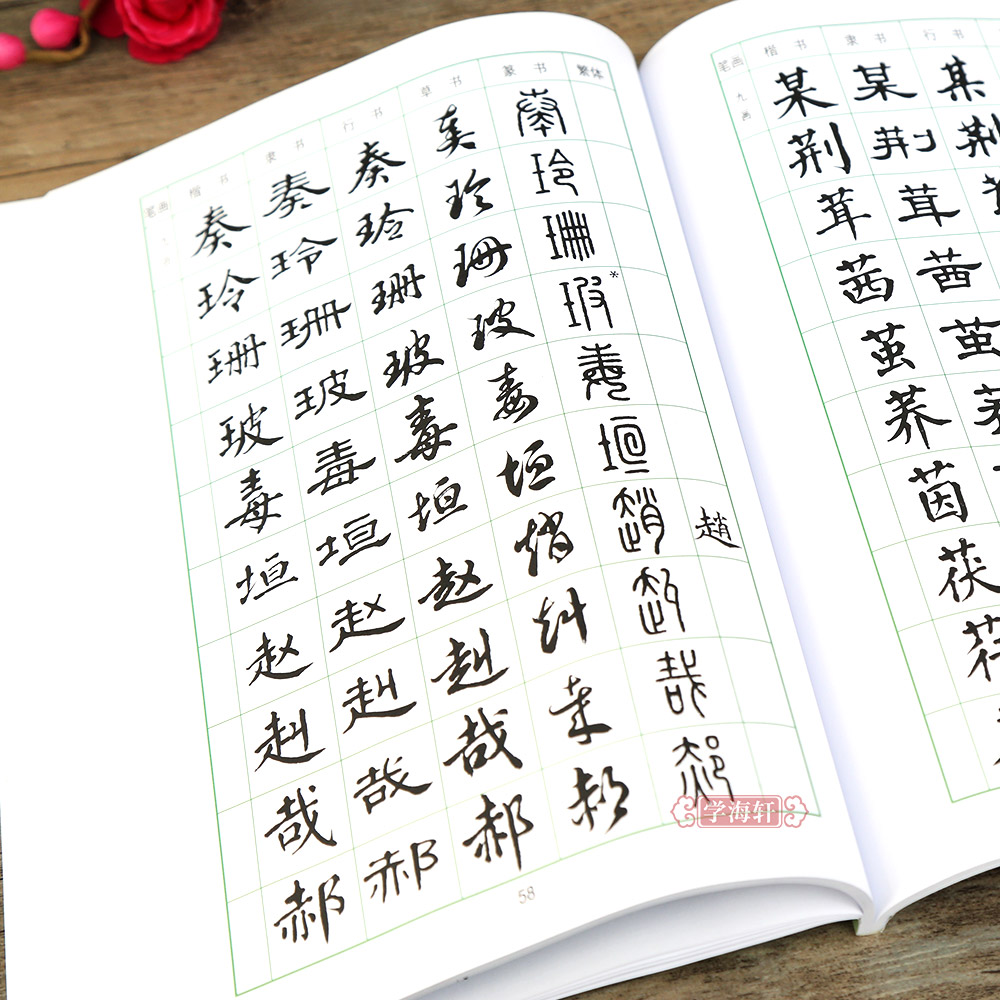 笔画 楷书 隶书 行书 草书 篆书 繁体
奏 奏 奏 奏 奏
玲 玲 玲 玲 玲
珊 珊 珊 珊 珊
玻 玻 玻 玻 玻*
毒 毒 毒 毒 毒
垣 垣 垣 垣 垣
赵 赵 赵 赵 趙 趙
赳 赳 赳 赳 赳
哉 哉 哉 哉 哉
郝 郝 郝 郝 郝
58
学海轩
笔画 楷书 隶书 行书
九画 某 某 某
荆 荆 荆
茸 茸
茜 茜
茧 茧
荞 荞
茵
茯